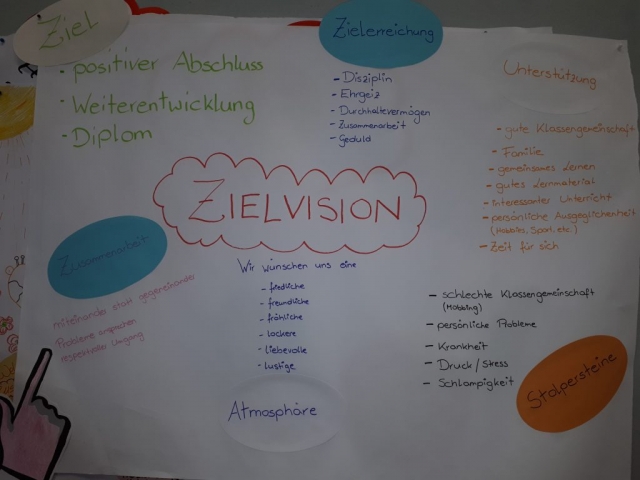 Ziel
- positiver Abschluss
- Weiterentwicklung
- Diplom
Zielerreichung
- Disziplin
- Ehrgeiz
- Durchhaltevermögen
- Zusammenarbeit
- Geduld
Unterstützung
- gute Klassengemeinschaft
- Familie
- gemeinsames Lernen
- gutes Lernmaterial
- interessanter Unterricht
- persönliche Ausgeglichenheit
(Hobbies, Sport, etc.)
- Zeit für sich
ZIELVISION
Zusammenarbeit
miteinander statt gegeneinander
Probleme ansprechen
respektvoller Umgang
Wir wünschen uns eine
- friedliche
- freundliche
- fröhliche
- lockere
- liebevolle
- lustige
Atmosphäre
- schlechte Klassengemeinschaft
(Mobbing)
- persönliche Probleme
- Krankheit
- Druck / Stress
- Schlampigkeit
Stolpersteine